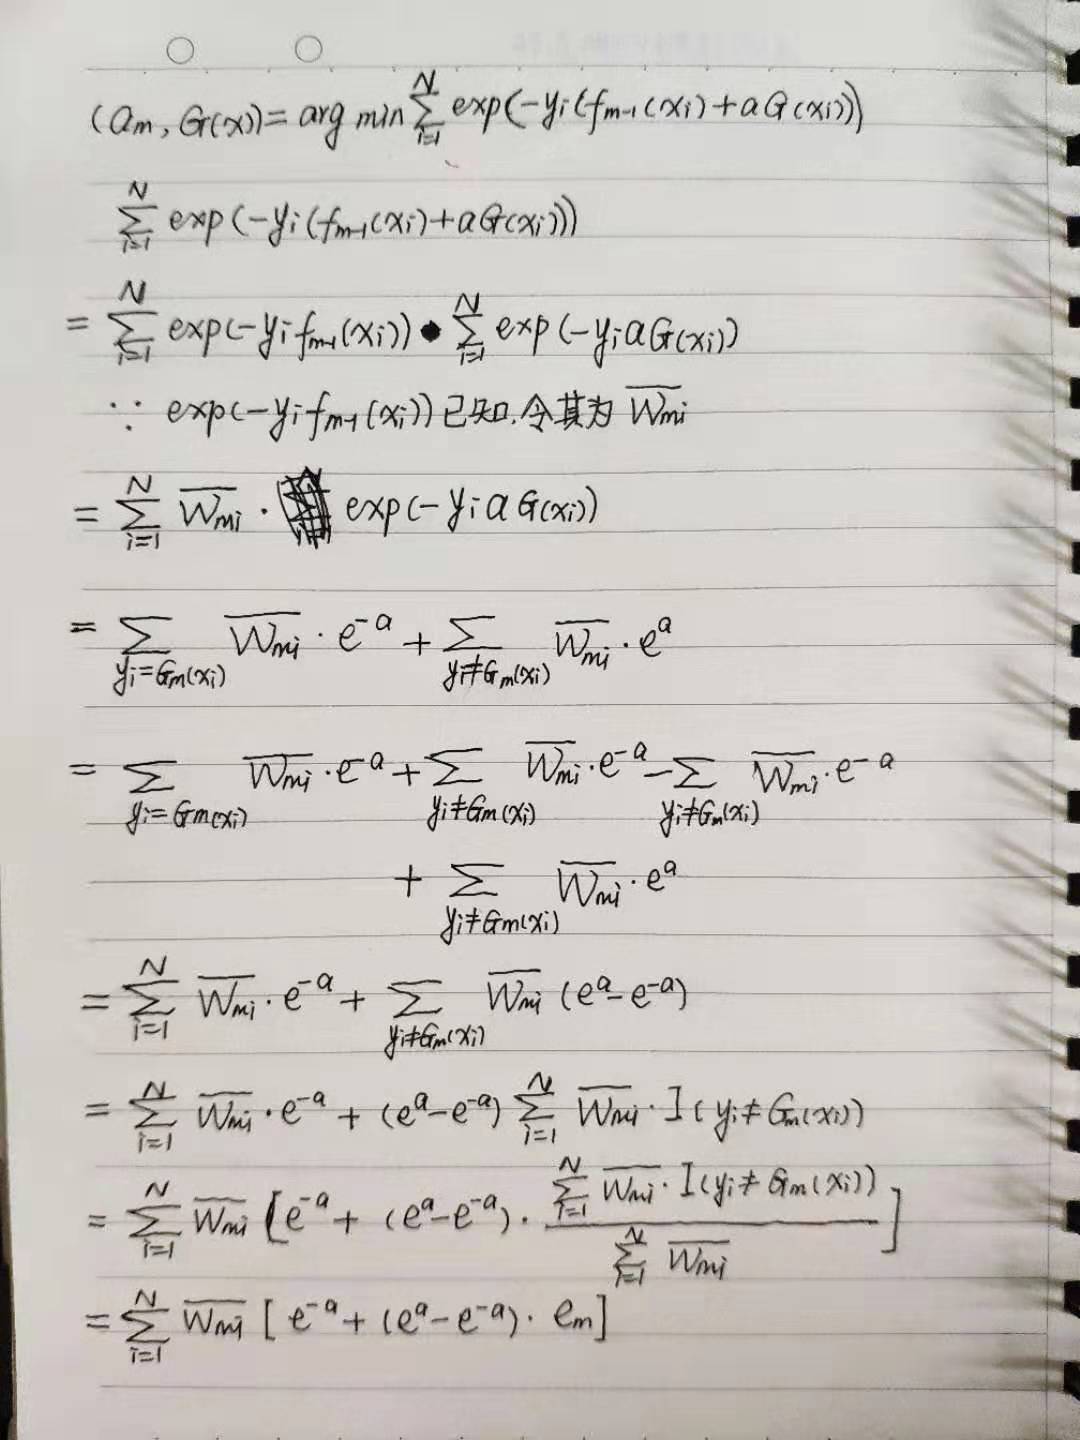 (aₘ, G(x)) = arg min ∑_{i=1}^{N} exp(-yᵢ(f_{m-1}(xᵢ)+aG(xᵢ)))
∑_{i=1}^{N} exp(-yᵢ(f_{m-1}(xᵢ)+aG(xᵢ)))
= ∑_{i=1}^{N} exp(-yᵢf_{m-1}(xᵢ)) • ∑_{i=1}^{N} exp(-yᵢaG(xᵢ))
∵ exp(-yᵢf_{m-1}(xᵢ))已知,令其为 \overline{W_{mi}}
= ∑_{i=1}^{N} \overline{W_{mi}} · exp(-yᵢaG(xᵢ))
= ∑_{yᵢ=Gₘ(xᵢ)} \overline{W_{mi}} · e^{-a} + ∑_{yᵢ≠Gₘ(xᵢ)} \overline{W_{mi}} · e^{a}
= ∑_{yᵢ=Gₘ(xᵢ)} \overline{W_{mi}} · e^{-a} + ∑_{yᵢ≠Gₘ(xᵢ)} \overline{W_{mi}} · e^{-a} - ∑_{yᵢ≠Gₘ(xᵢ)} \overline{W_{mi}} · e^{-a}
+ ∑_{yᵢ≠Gₘ(xᵢ)} \overline{W_{mi}} · e^{a}
= ∑_{i=1}^{N} \overline{W_{mi}} · e^{-a} + ∑_{yᵢ≠Gₘ(xᵢ)} \overline{W_{mi}} (e^{a}-e^{-a})
= ∑_{i=1}^{N} \overline{W_{mi}} · e^{-a} + (e^{a}-e^{-a}) ∑_{i=1}^{N} \overline{W_{mi}} · I(yᵢ≠Gₘ(xᵢ))
= ∑_{i=1}^{N} \overline{W_{mi}} [e^{-a} + (e^{a}-e^{-a}) · \frac{∑_{i=1}^{N} \overline{W_{mi}} · I(yᵢ≠Gₘ(xᵢ))}{∑_{i=1}^{N} \overline{W_{mi}}}]
= ∑_{i=1}^{N} \overline{W_{mi}} [e^{-a} + (e^{a}-e^{-a}) · eₘ]